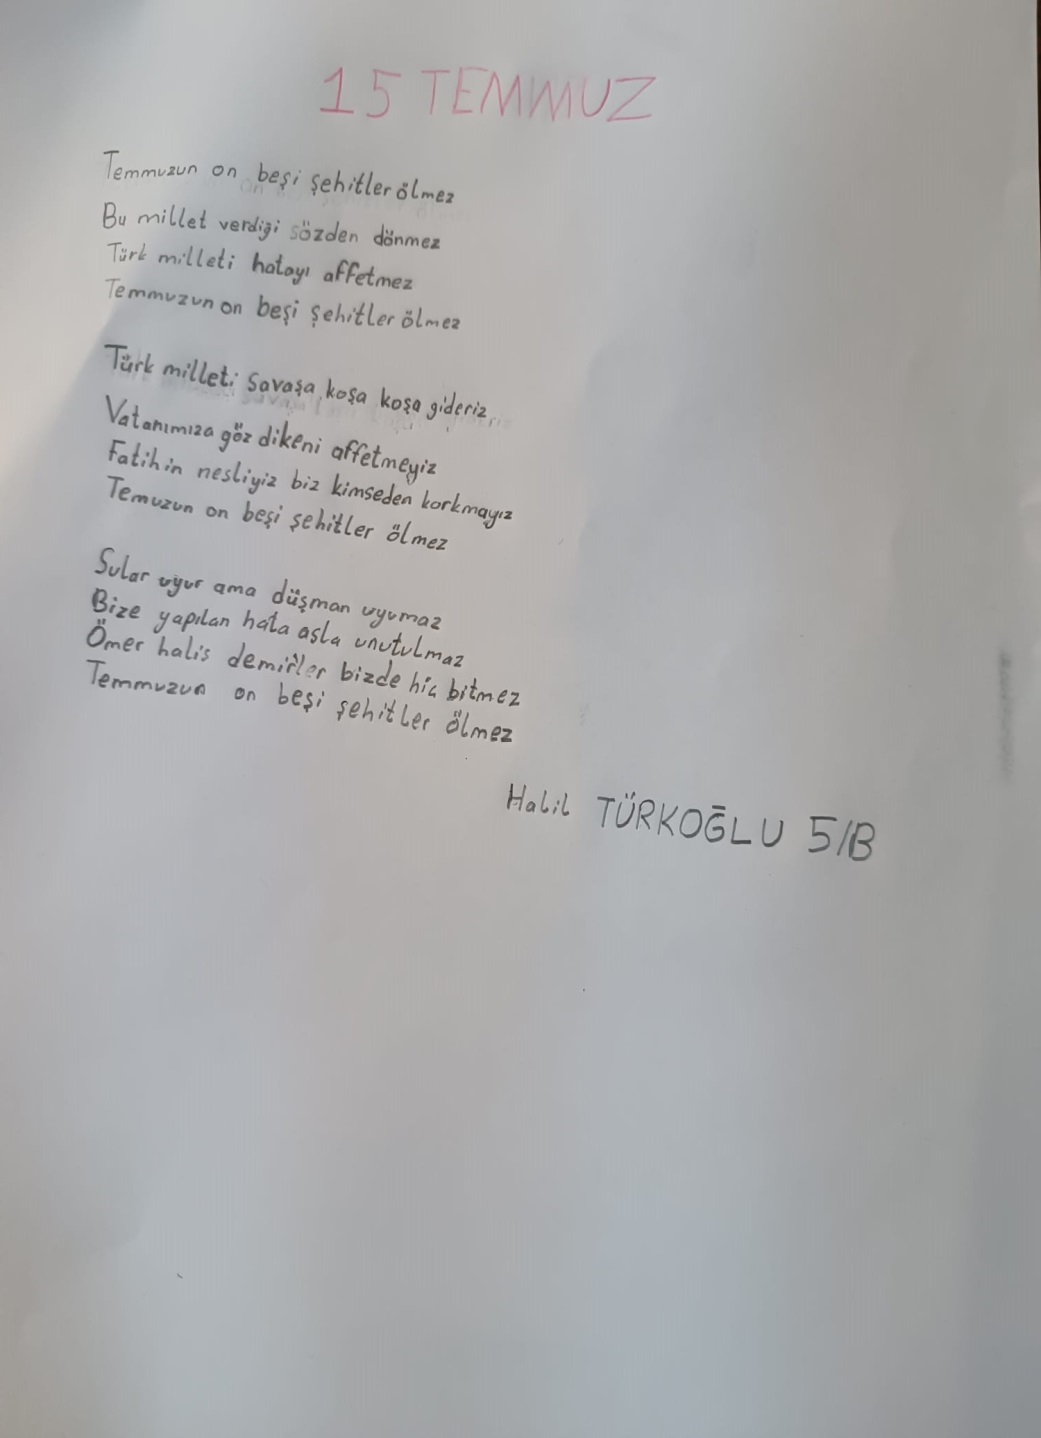 15 TEMMUZ
Temmuzun on beşi şehitler ölmez
Bu millet verdiği sözden dönmez
Türk milleti hatayı affetmez
Temmuzun on beşi şehitler ölmez
Türk milleti savaşa koşa koşa gideriz
Vatanımıza göz dikeni affetmeyiz
Fatihin nesliyiz biz kimseden korkmayız
Temuzun on beşi şehitler ölmez
Sular uyur ama düşman uyumaz
Bize yapılan hata asla unutulmaz
Ömer halis demirler bizde hiç bitmez
Temmuzun on beşi şehitler ölmez
Halil TÜRKOĞLU 5/B